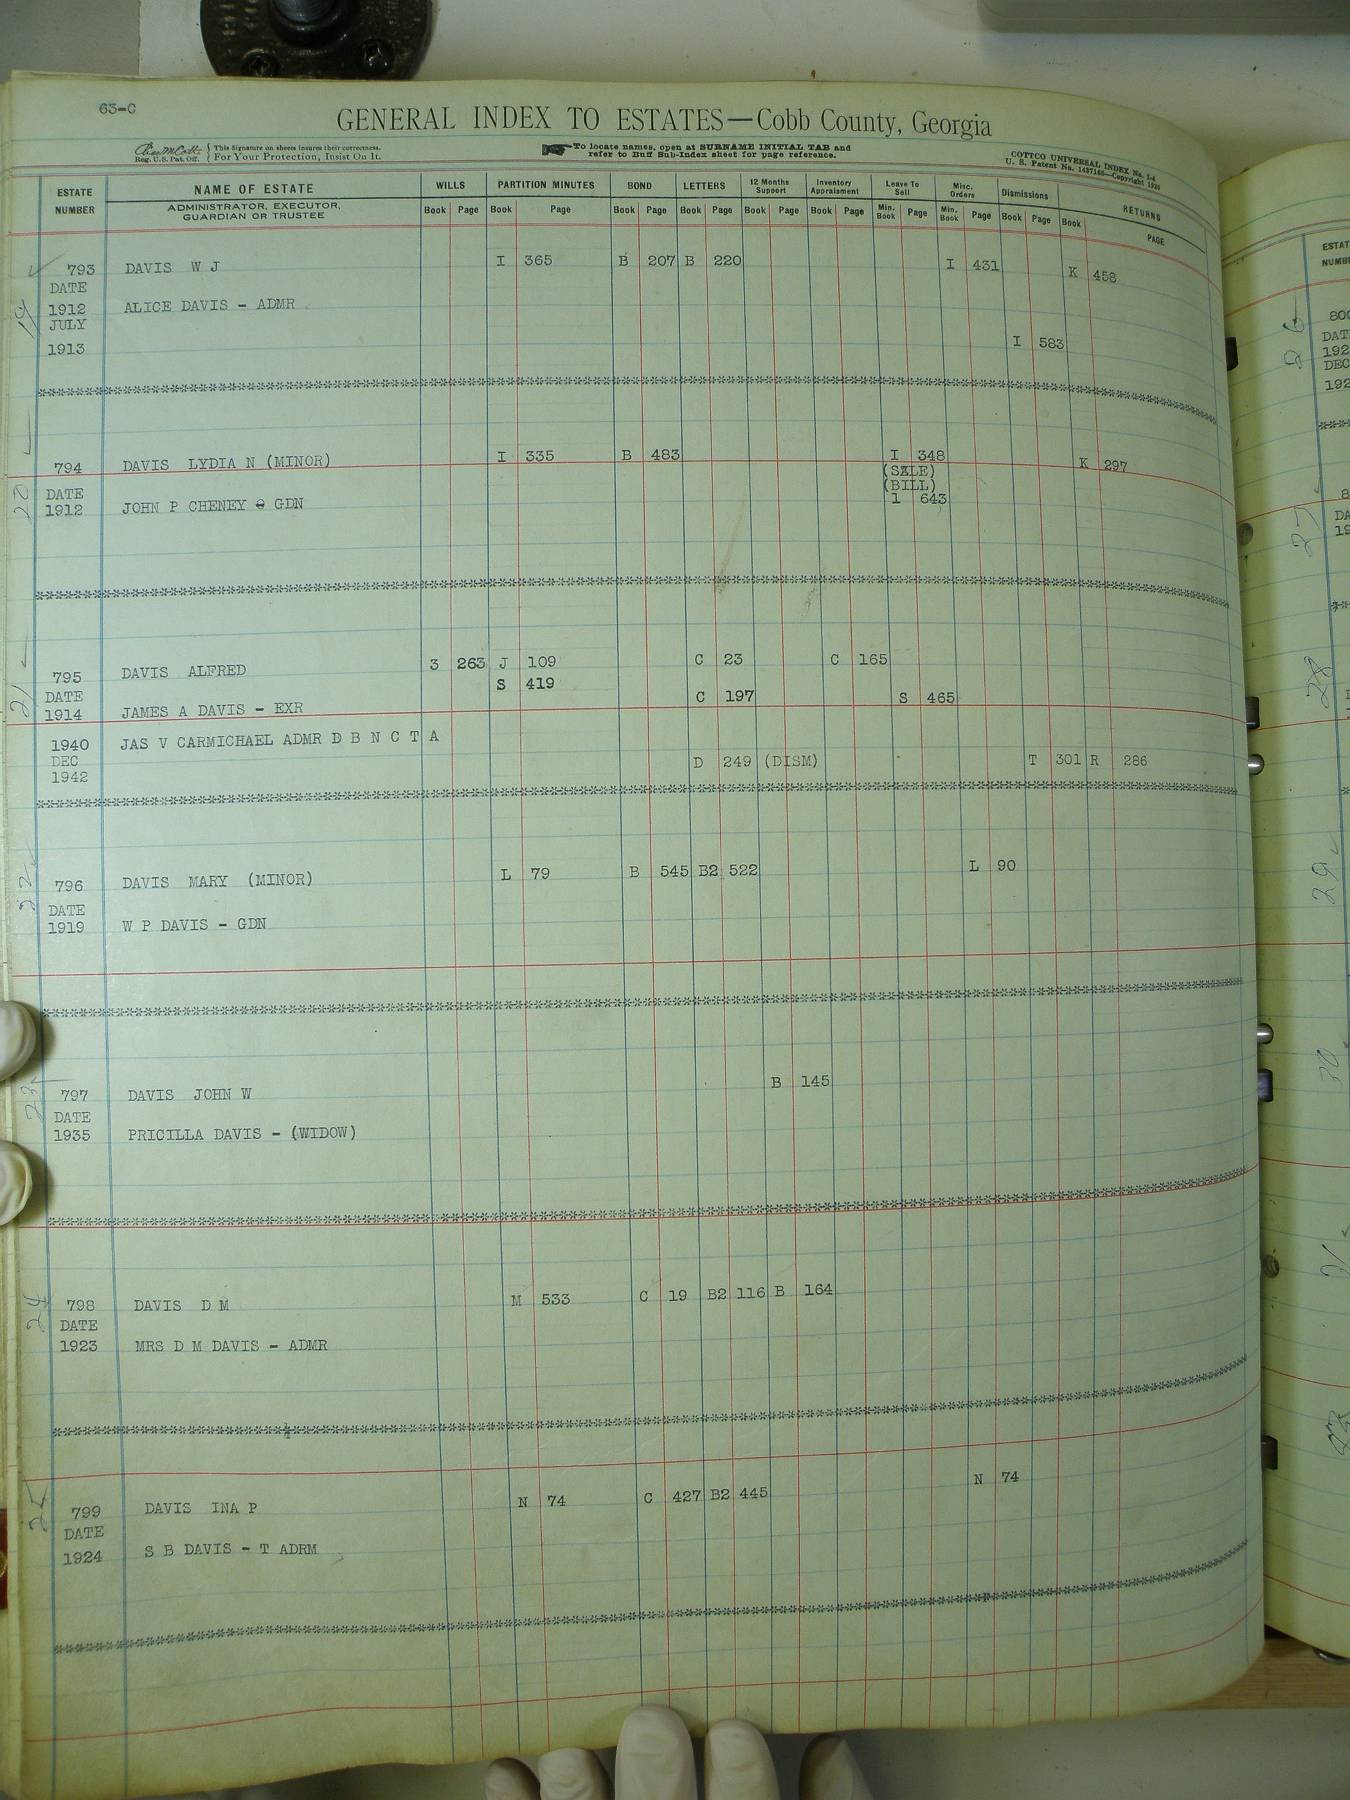 63-C
GENERAL INDEX TO ESTATES—Cobb County, Georgia
Reg. U.S. Pat. Off. This Signature on sheets insures their correctness. For Your Protection, Insist On It.
To locate names, open at SURNAME INITIAL TAB and
refer to Buff Sub-Index sheet for page reference.
COTTCO UNIVERSAL INDEX No. 1-4
U. S. Patent No. 1437168—Copyright 1926
ESTATE NUMBER
NAME OF ESTATE
ADMINISTRATOR, EXECUTOR,
GUARDIAN OR TRUSTEE
WILLS PARTITION MINUTES BOND LETTERS 12 Months Support Inventory Appraisment Leave To Sell Misc. Orders Dismissions RETURNS
Book Page Book Page Book Page Book Page Book Page Book Page Min. Book Page Min. Book Page Book Page Book PAGE
19 793 DAVIS W J I 365 B 207 B 220 I 431 K 458
DATE
1912 ALICE DAVIS - ADMR
JULY
1913 I 583
20 794 DAVIS LYDIA N (MINOR) I 335 B 483 I 348 K 297
(SALE)
DATE (BILL)
1912 JOHN P CHENEY - GDN 1 643
21 795 DAVIS ALFRED 3 263 J 109 C 23 C 165
S 419
DATE C 197 S 465
1914 JAMES A DAVIS - EXR
1940 JAS V CARMICHAEL ADMR D B N C T A
DEC D 249 (DISM) T 301 R 286
1942
22 796 DAVIS MARY (MINOR) L 79 B 545 B2 522 L 90
DATE
1919 W P DAVIS - GDN
23 797 DAVIS JOHN W B 145
DATE
1935 PRICILLA DAVIS - (WIDOW)
24 798 DAVIS D M M 533 C 19 B2 116 B 164
DATE
1923 MRS D M DAVIS - ADMR
25 799 DAVIS INA P N 74 C 427 B2 445 N 74
DATE
1924 S B DAVIS - T ADRM
ESTAT
NUMB
26
800
DAT
192
DEC
192
27
8
DA
19
28
29
30